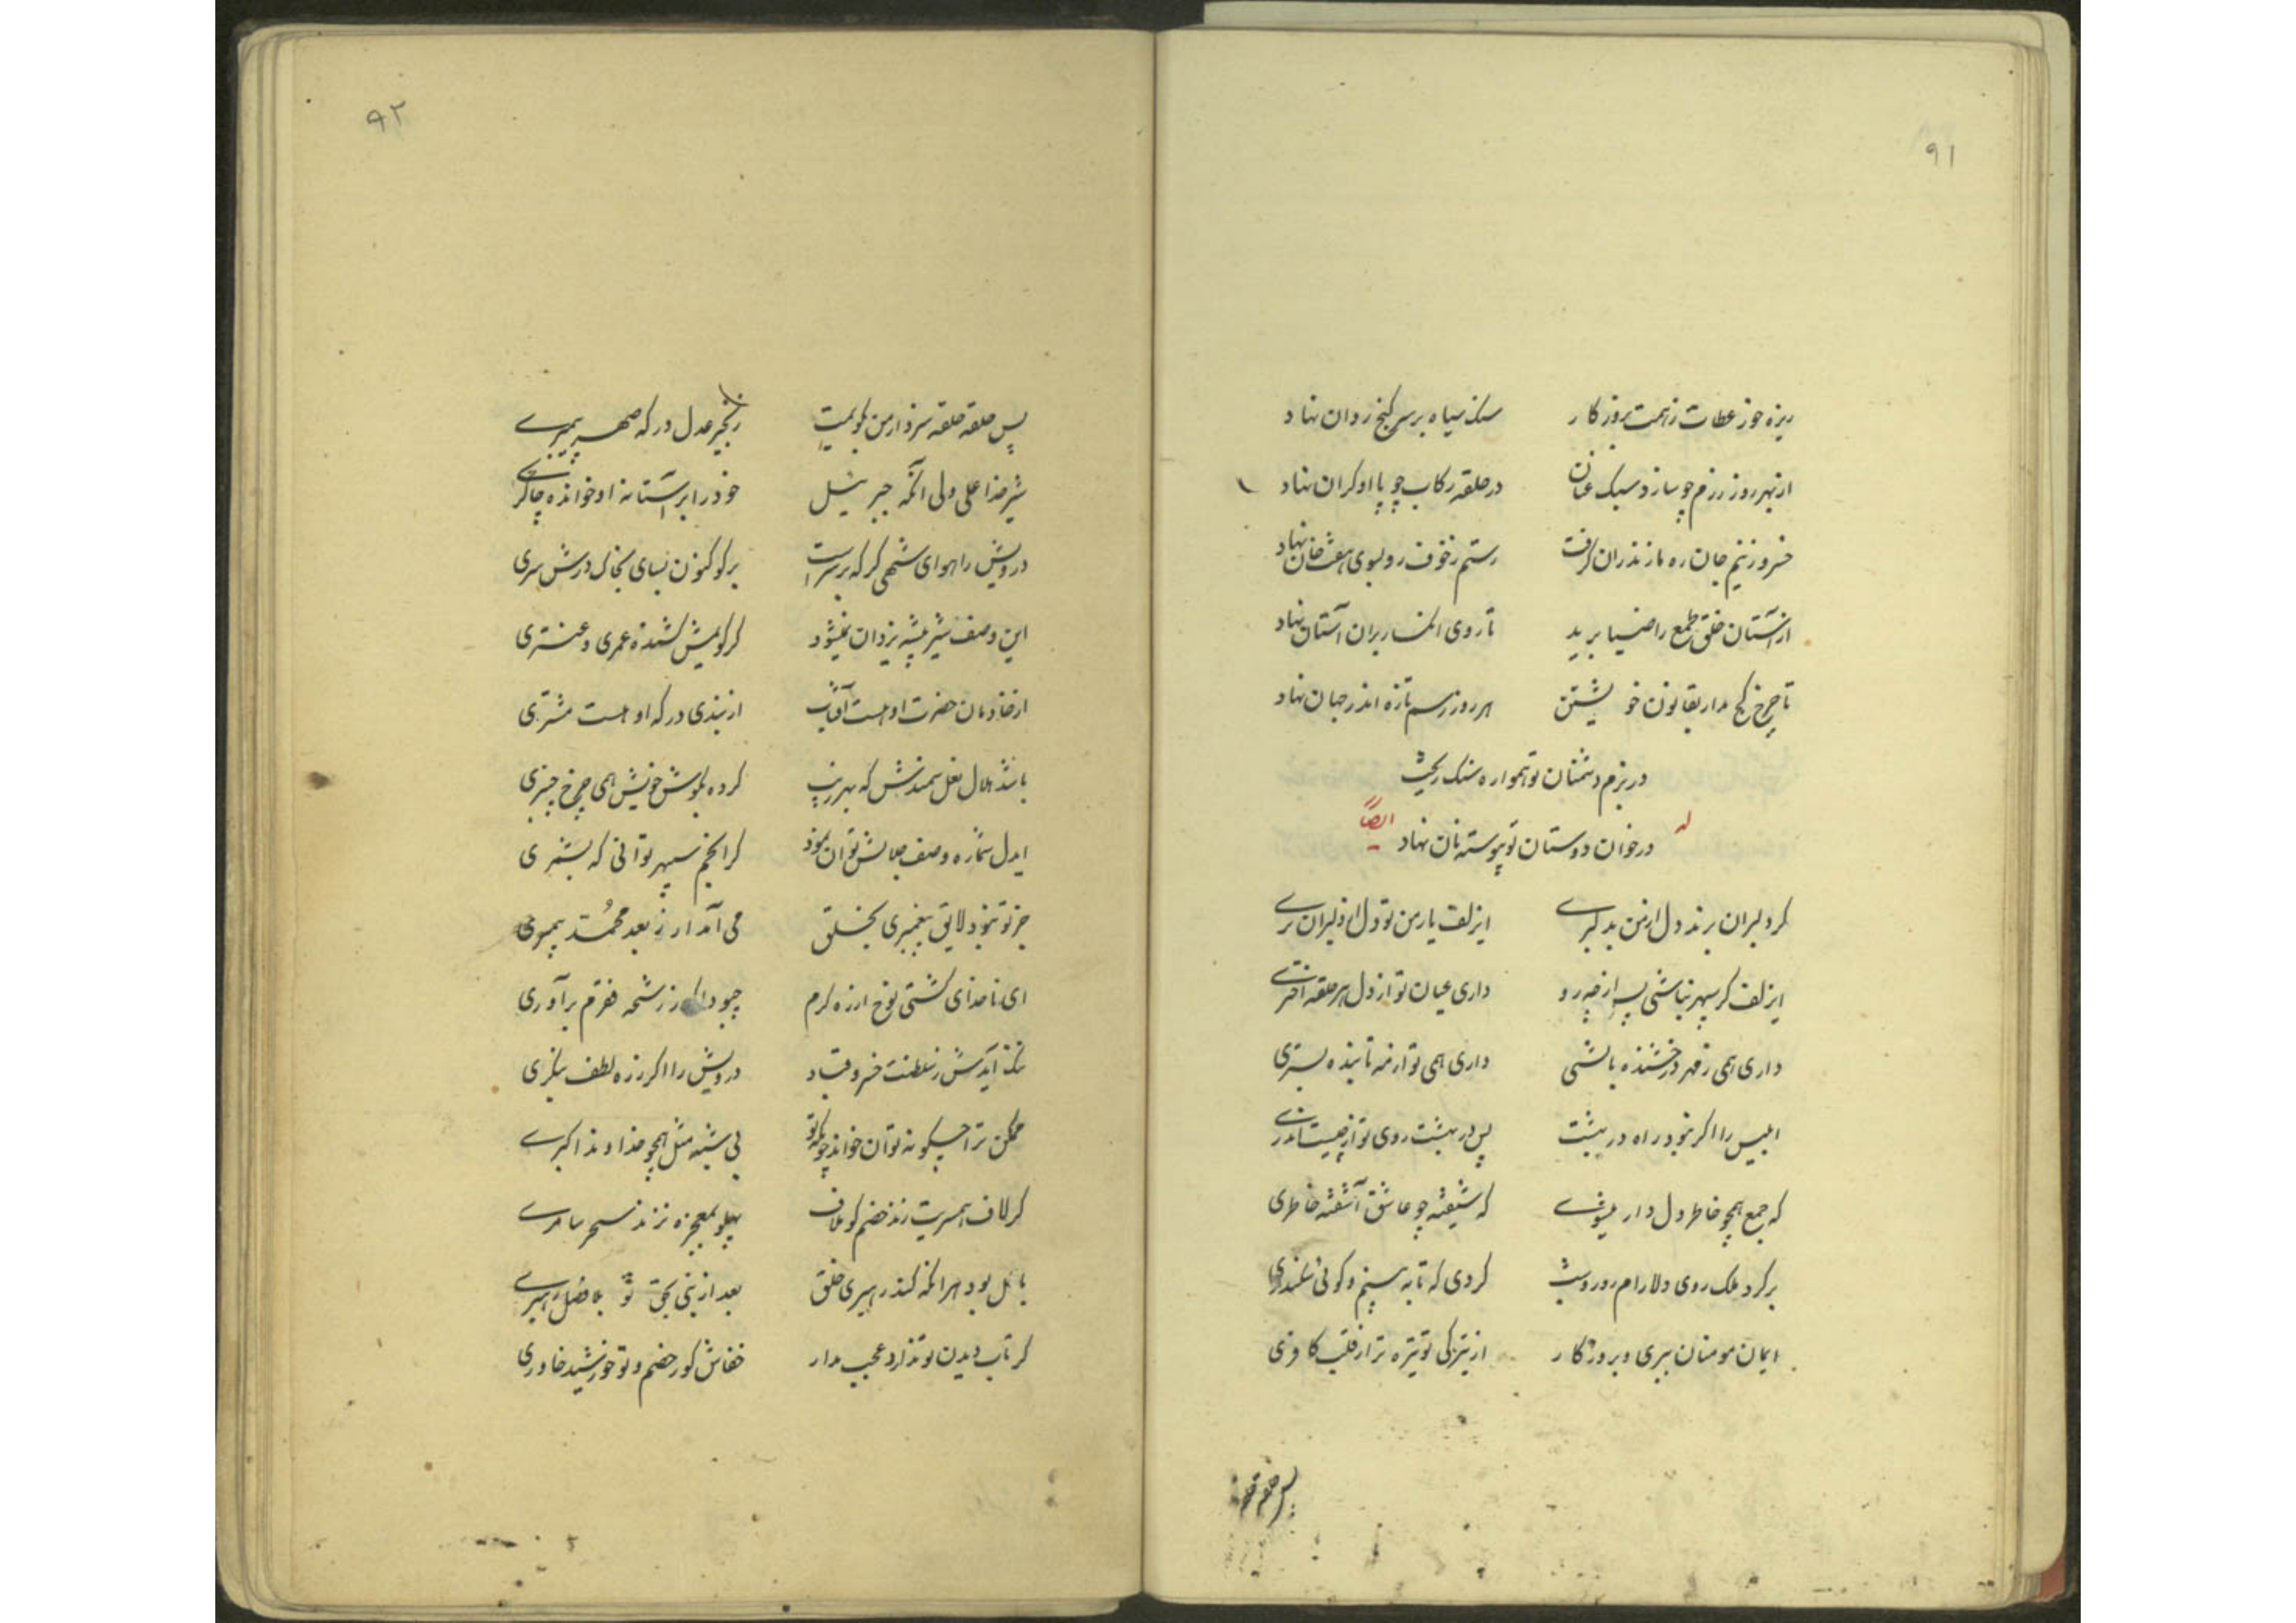 ۹۱
ریزه خور عطات ز همت بروزگار سنگ سیاه بر سر گنج روان نهاد
از بهر روز رزم چو سازد سبک عنان در حلقه رکاب چو پا او گران نهاد
خسرو ز بیم جان ره مازندران گرفت رستم ز خوف رو بسوی هفت خان نهاد
از آستان خلق طمع را ضیا برید تا روی انکسار بران آستان نهاد
تا چرخ کج مدار بقانون خویشتن هر روز رسم تازه اندر جهان نهاد
در بزم دشمنان تو همواره سنک ریخت
در خوان دوستان تو پیوسته نان نهاد
له ایضاً
کر دلبران برند دل از من بدلبری ایزلف یار من تو دل از دلبران بری
ایزلف کر سپهر نباشی پس از چه رو داری عیان تو از دل هر حلقه اختری
داری همی ز مهر درخشنده بالشی داری همی تو از مه تابنده بستری
ابلیس را اکر نبود راه در بهشت پس در بهشت روی تو از چیست اندری
که جمع همچو خاطر دلدار میشوی که شیفته چو عاشق آشفته خاطری
بر کرد ملک روی دلارام روز و شب کردی که تا به بینم و کوئی سکندری
ایمان مومنان ببری و بروزکار از تیرکی تو تیره تر از قلب کافری
پس حلقه حلقه
۹۲
پس حلقه حلقه سزد ار من بکویمت زنجیر عدل درکه صهر پیمبری
شیر خدا علی ولی آنکه جبرئیل خود را بر آستانه او خوانده چاکری
درویش را هوای شهی کر که بر سر است بر کو کنون بسای بخاک درش سری
این وصف شیر بیشه یزدان نمیشود کر کویمش کشنده عمری و عنتری
از خادمان حضرت او هست آفتاب از بندی درکه او هست مشتری
باشد هلال نعل سمندش که بهر زیب کرده بکوش خویش همی چرخ چنبری
ایدل شماره وصف جلالش توان نمود کر انجم سپهر توانی که بشمری
جز تو نبود لایق پیغمبری بخلق می آمد ار ز بعد محمد پیمبری
ای ناخدای کشتی نوح از ره کرم از رشحه فقرم برآوری
ننک آیدش ز سلطنت خسرو و قباد درویش را اکر ز ره لطف بنکری
ممکن ترا چکونه توان خواند چونکه تو بی شبه مثل همچو خداوند اکبری
کر لاف همسریت زند خصم کو ملاف پهلو بمعجزه نزند سحر سامری
باطل بود هر آنکه کند رهبری خلق بعد از نبی بحق تو بلا فصل رهبری
کر تاب دیدن تو ندارد عجب مدار خفاش کور خصم و تو خورشید خاوری